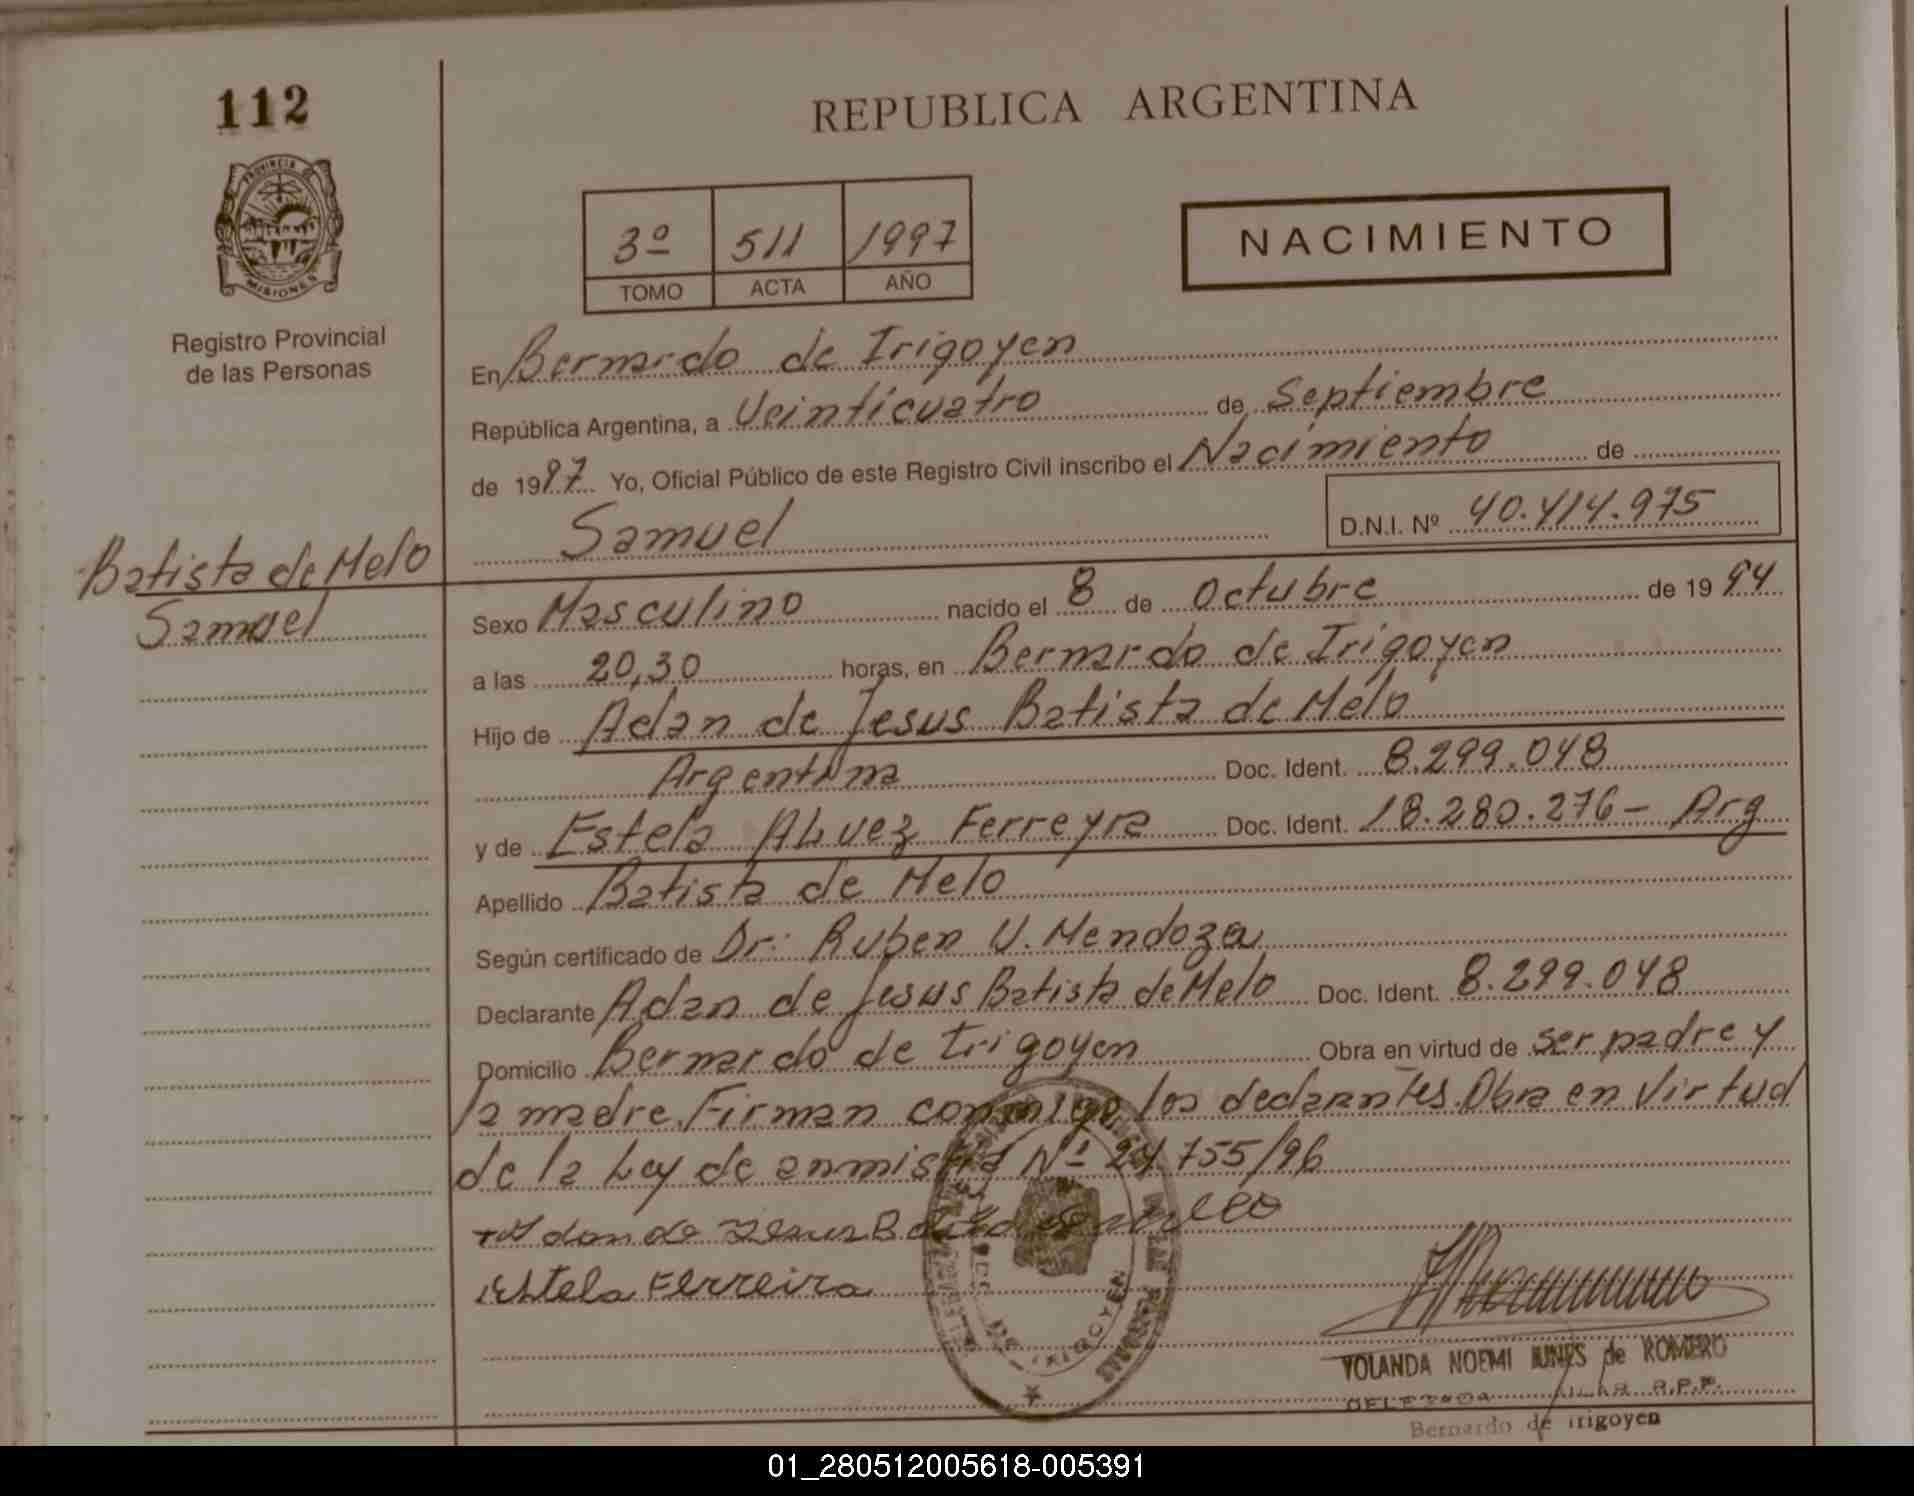 112
REPUBLICA ARGENTINA
PROVINCIA DE
MISIONES
3º 511 1997
TOMO ACTA AÑO
NACIMIENTO
Registro Provincial
de las Personas
En Bernardo de Irigoyen
República Argentina, a Veinticuatro de Septiembre
de 1997. Yo, Oficial Público de este Registro Civil inscribo el Nacimiento de
Samuel D.N.I. Nº 40.414.975
Batista de Melo
Samuel
Sexo Masculino nacido el 8 de Octubre de 1994
a las 20,30 horas, en Bernardo de Irigoyen
Hijo de Adan de Jesus Batista de Melo
Argentina Doc. Ident. 8.299.048
y de Estela Alvez Ferreyra Doc. Ident. 18.280.276 - Arg
Apellido Batista de Melo
Según certificado de Dr: Ruben U. Mendoza
Declarante Adan de Jesus Batista de Melo Doc. Ident. 8.299.048
Domicilio Bernardo de Irigoyen Obra en virtud de ser padre y
la madre. Firman conmigo los declarantes. Obra en Virtud
de la Ley de anmistia Nº 24.755/96
Adan de Jesus Batista de Mello
Estela Ferreira
DE IRIGOYEN
YOLANDA NOEMI de ROMERO
R.P.P.
Bernardo de Irigoyen
01_280512005618-005391